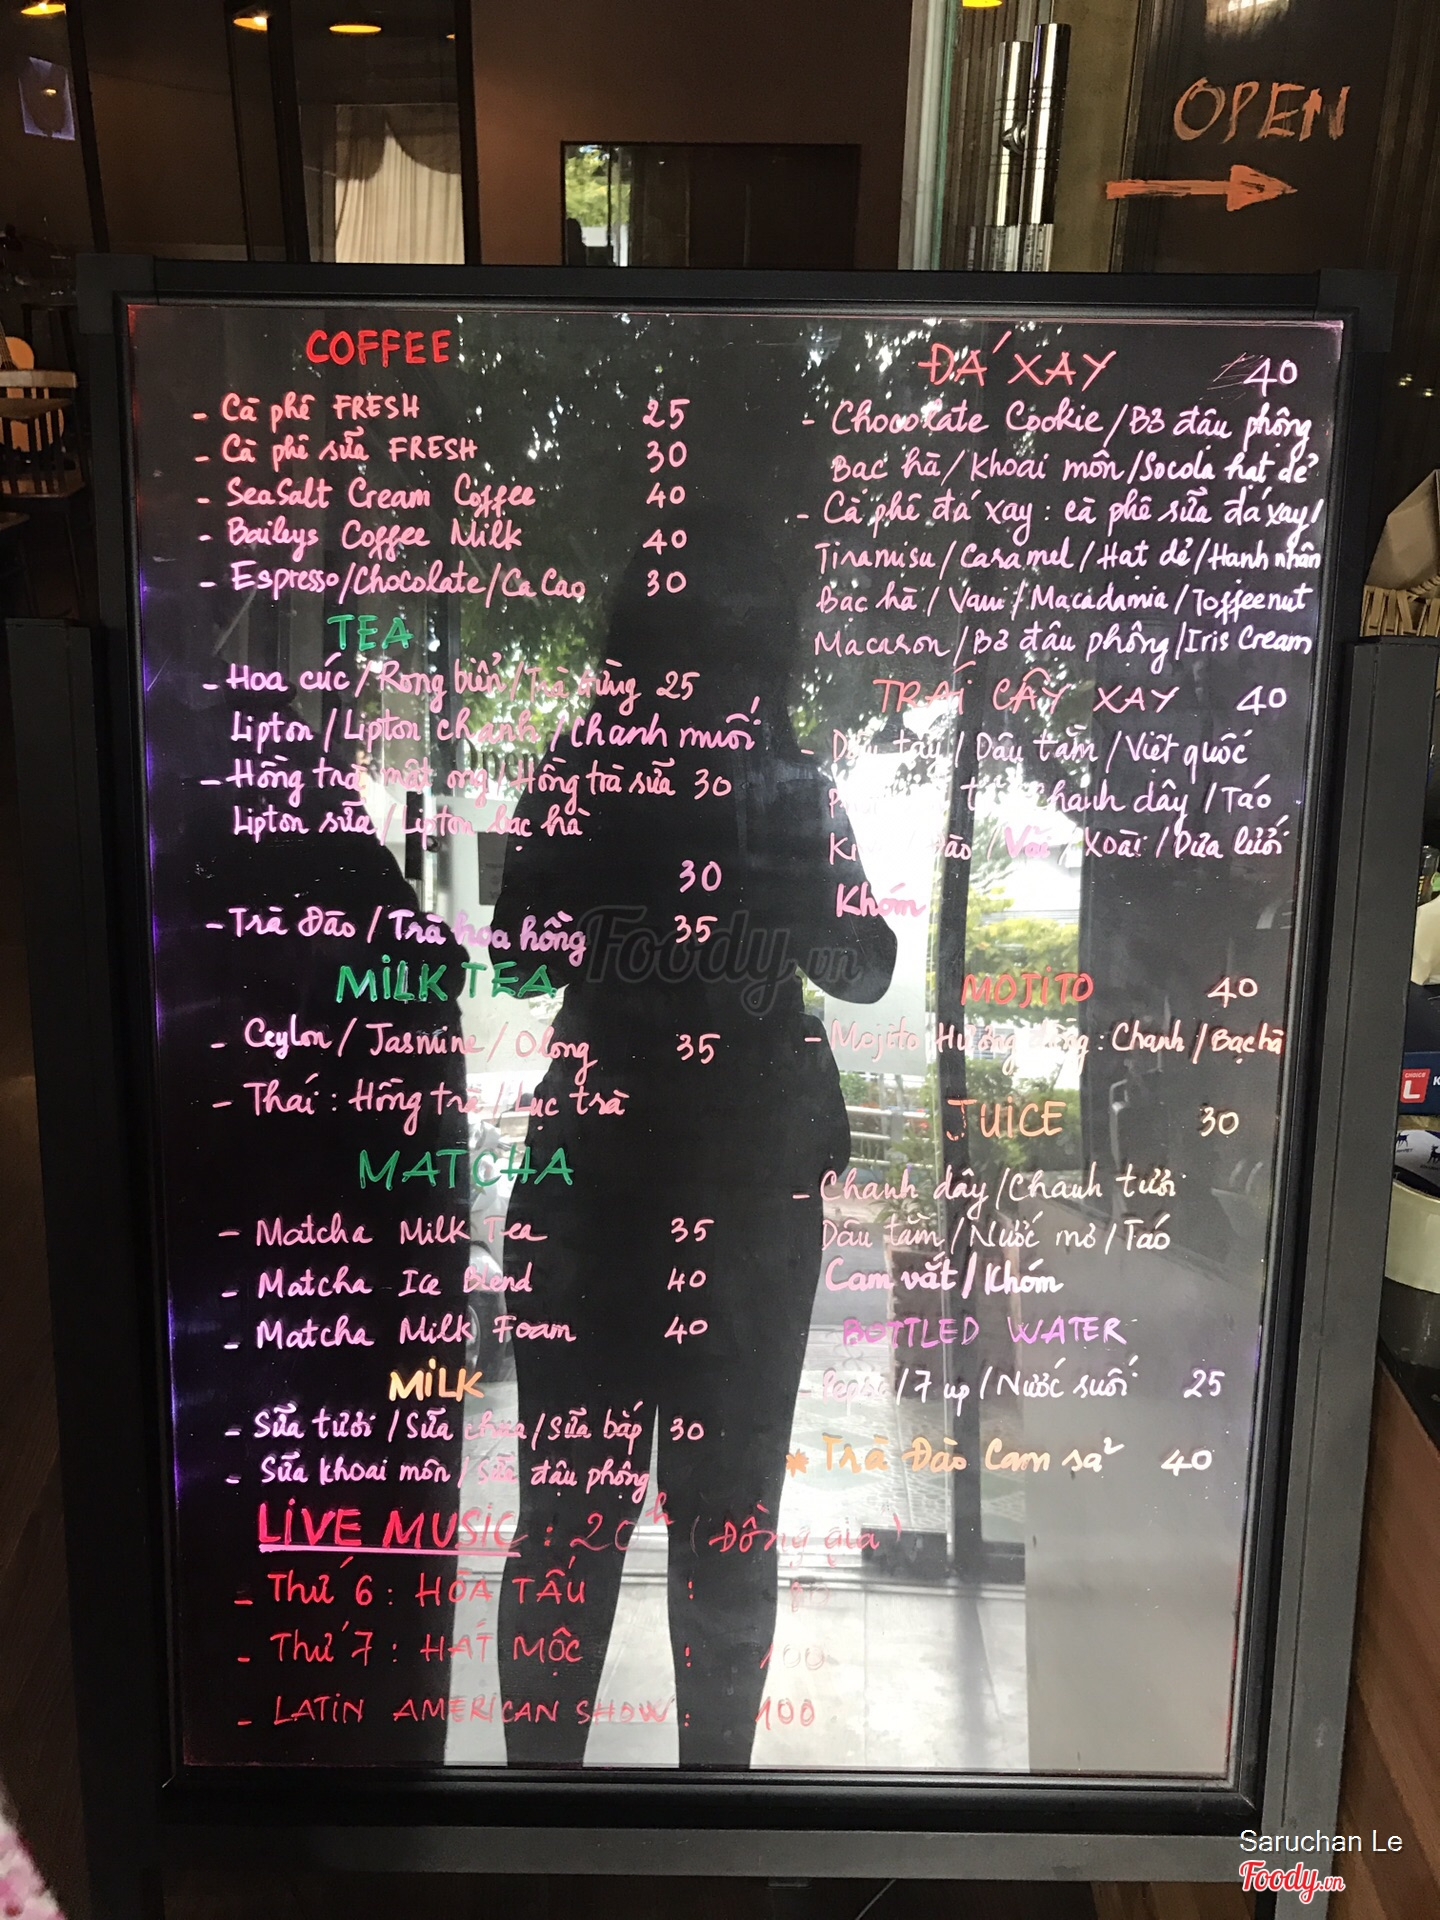 OPEN
COFFEE
- Cà phê FRESH 25
- Cà phê sữa FRESH 30
- SeaSalt Cream Coffee 40
- Baileys Coffee Milk 40
- Espresso/Chocolate/Ca Cao 30
TEA
- Hoa cúc/Rong biển/Trà gừng 25
Lipton/Lipton chanh/Chanh muối
- Hồng trà mật ong/Hồng trà sữa 30
Lipton sữa/Lipton bạc hà
30
- Trà Đào/Trà hoa hồng 35
MILK TEA
- Ceylon/Jasmine/Olong 35
- Thái: Hồng trà/Lục trà
MATCHA
- Matcha Milk Tea 35
- Matcha Ice Blend 40
- Matcha Milk Foam 40
MILK
- Sữa tươi/Sữa chua/Sữa bắp 30
- Sữa khoai môn/Sữa đậu phộng
ĐÁ XAY 40
- Chocolate Cookie/Bơ đậu phộng
Bạc hà/Khoai môn/Socola hạt dẻ
- Cà phê đá xay: cà phê sữa đá xay/
Tiramisu/Caramel/Hạt dẻ/Hạnh nhân
Bạc hà/Vani/Macadamia/Toffeenut
Macaron/Bơ đậu phộng/Iris Cream
TRÁI CÂY XAY 40
- Dâu tây/Dâu tằm/Việt quốc
Chanh dây/Táo
Vải/Xoài/Dưa lưới
Khóm
MOJITO 40
- Mojito Hương : Chanh/Bạc hà
JUICE 30
- Chanh dây/Chanh tươi
Dâu tằm/Nước mơ/Táo
Cam vắt/Khóm
BOTTLED WATER
- Pepsi/7 up/Nước suối 25
* Trà Đào Cam sả 40
LIVE MUSIC : 20h (Đồng giá)
- Thứ 6 : HÒA TẤU :
- Thứ 7 : HÁT MỘC : 100
- LATIN AMERICAN SHOW : 100
Foody.vn
Saruchan Le
Foody.vn